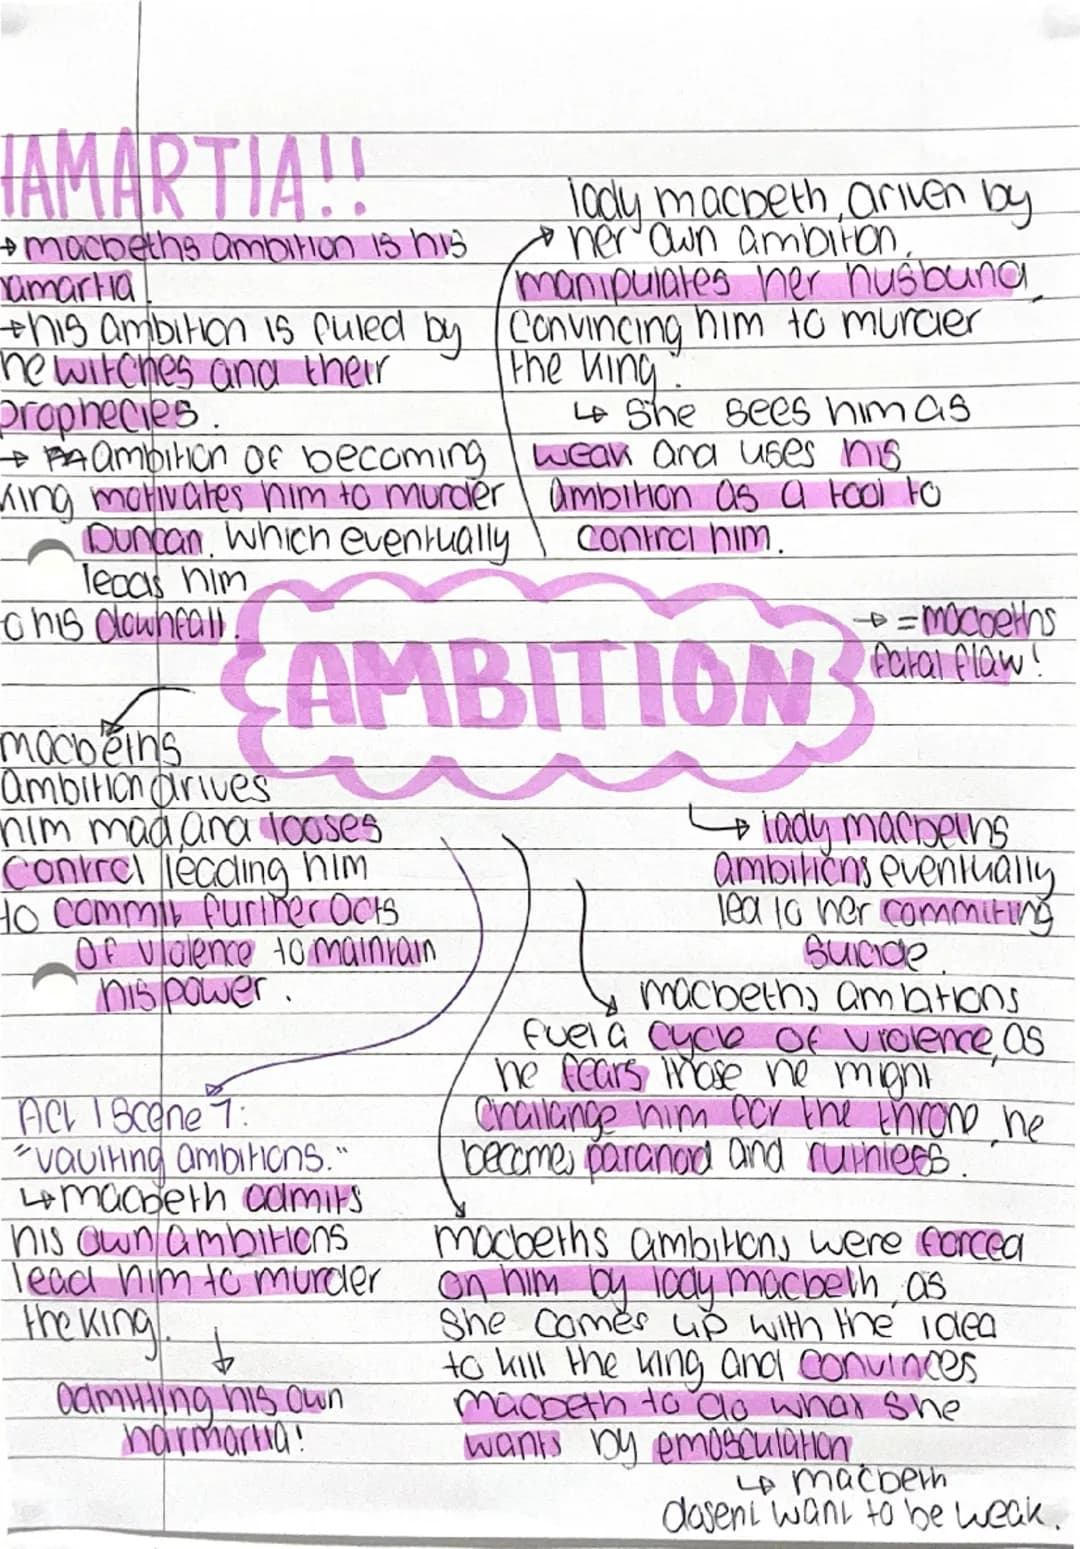 HAMARTIA!!
→ macbeths ambition is his
hamartia.
→ his ambition is fuled by
the witches and their
prophecies.
→ ambition of becoming
king motivates him to murder
Duncan, which eventually
leads him
to his downfall.
lady macbeth, driven by
her own ambition,
manipulates her husband,
convincing him to murder
the king.
↳ she sees him as
weak and uses his
ambition as a tool to
control him.
AMBITION
→ = macbeths
fatal flaw!
macbeths
ambition drives
him mad, and looses
control leading him
to commit further acts
of violence to maintain
his power.
↳ lady macbeths
ambitions eventually
lead to her commiting
suicide.
macbeths ambitions
fuel a cycle of violence, as
he fears those he might
challange him for the throne, he
becomes paranoid and ruthless.
Act 1 Scene 7:
"vaulting ambitions."
↳ macbeth admits
his own ambitions
lead him to murder
the king.
↓
admitting his own
harmartia!
macbeths ambitions were forced
on him by lady macbeth, as
she comes up with the idea
to kill the king and convinces
macbeth to do what she
wants by emasculation
↳ macbeth
dosent want to be weak.